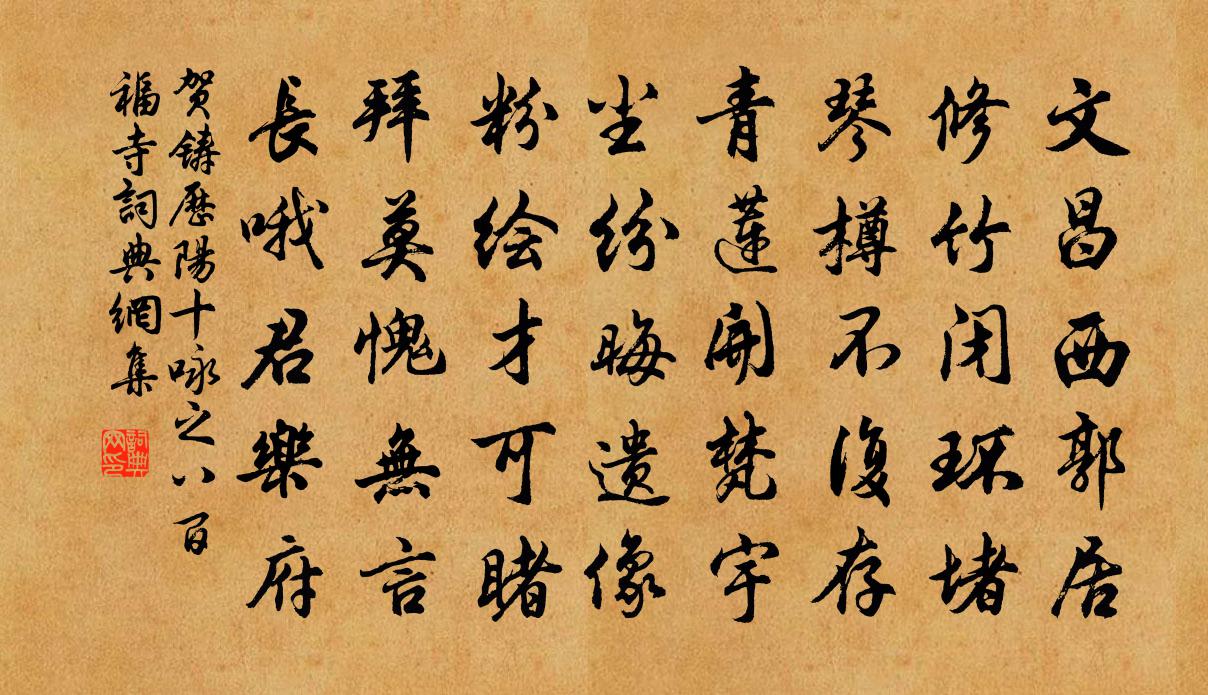 文昌西郭居
修竹闭环堵
琴樽不復存
青蓮開梵宇
尘纷晦遗像
粉绘才可睹
拜莫愧無言
長哦君樂府
贺鑄歷陽十咏之八百
福寺詞典網集
詞典網印